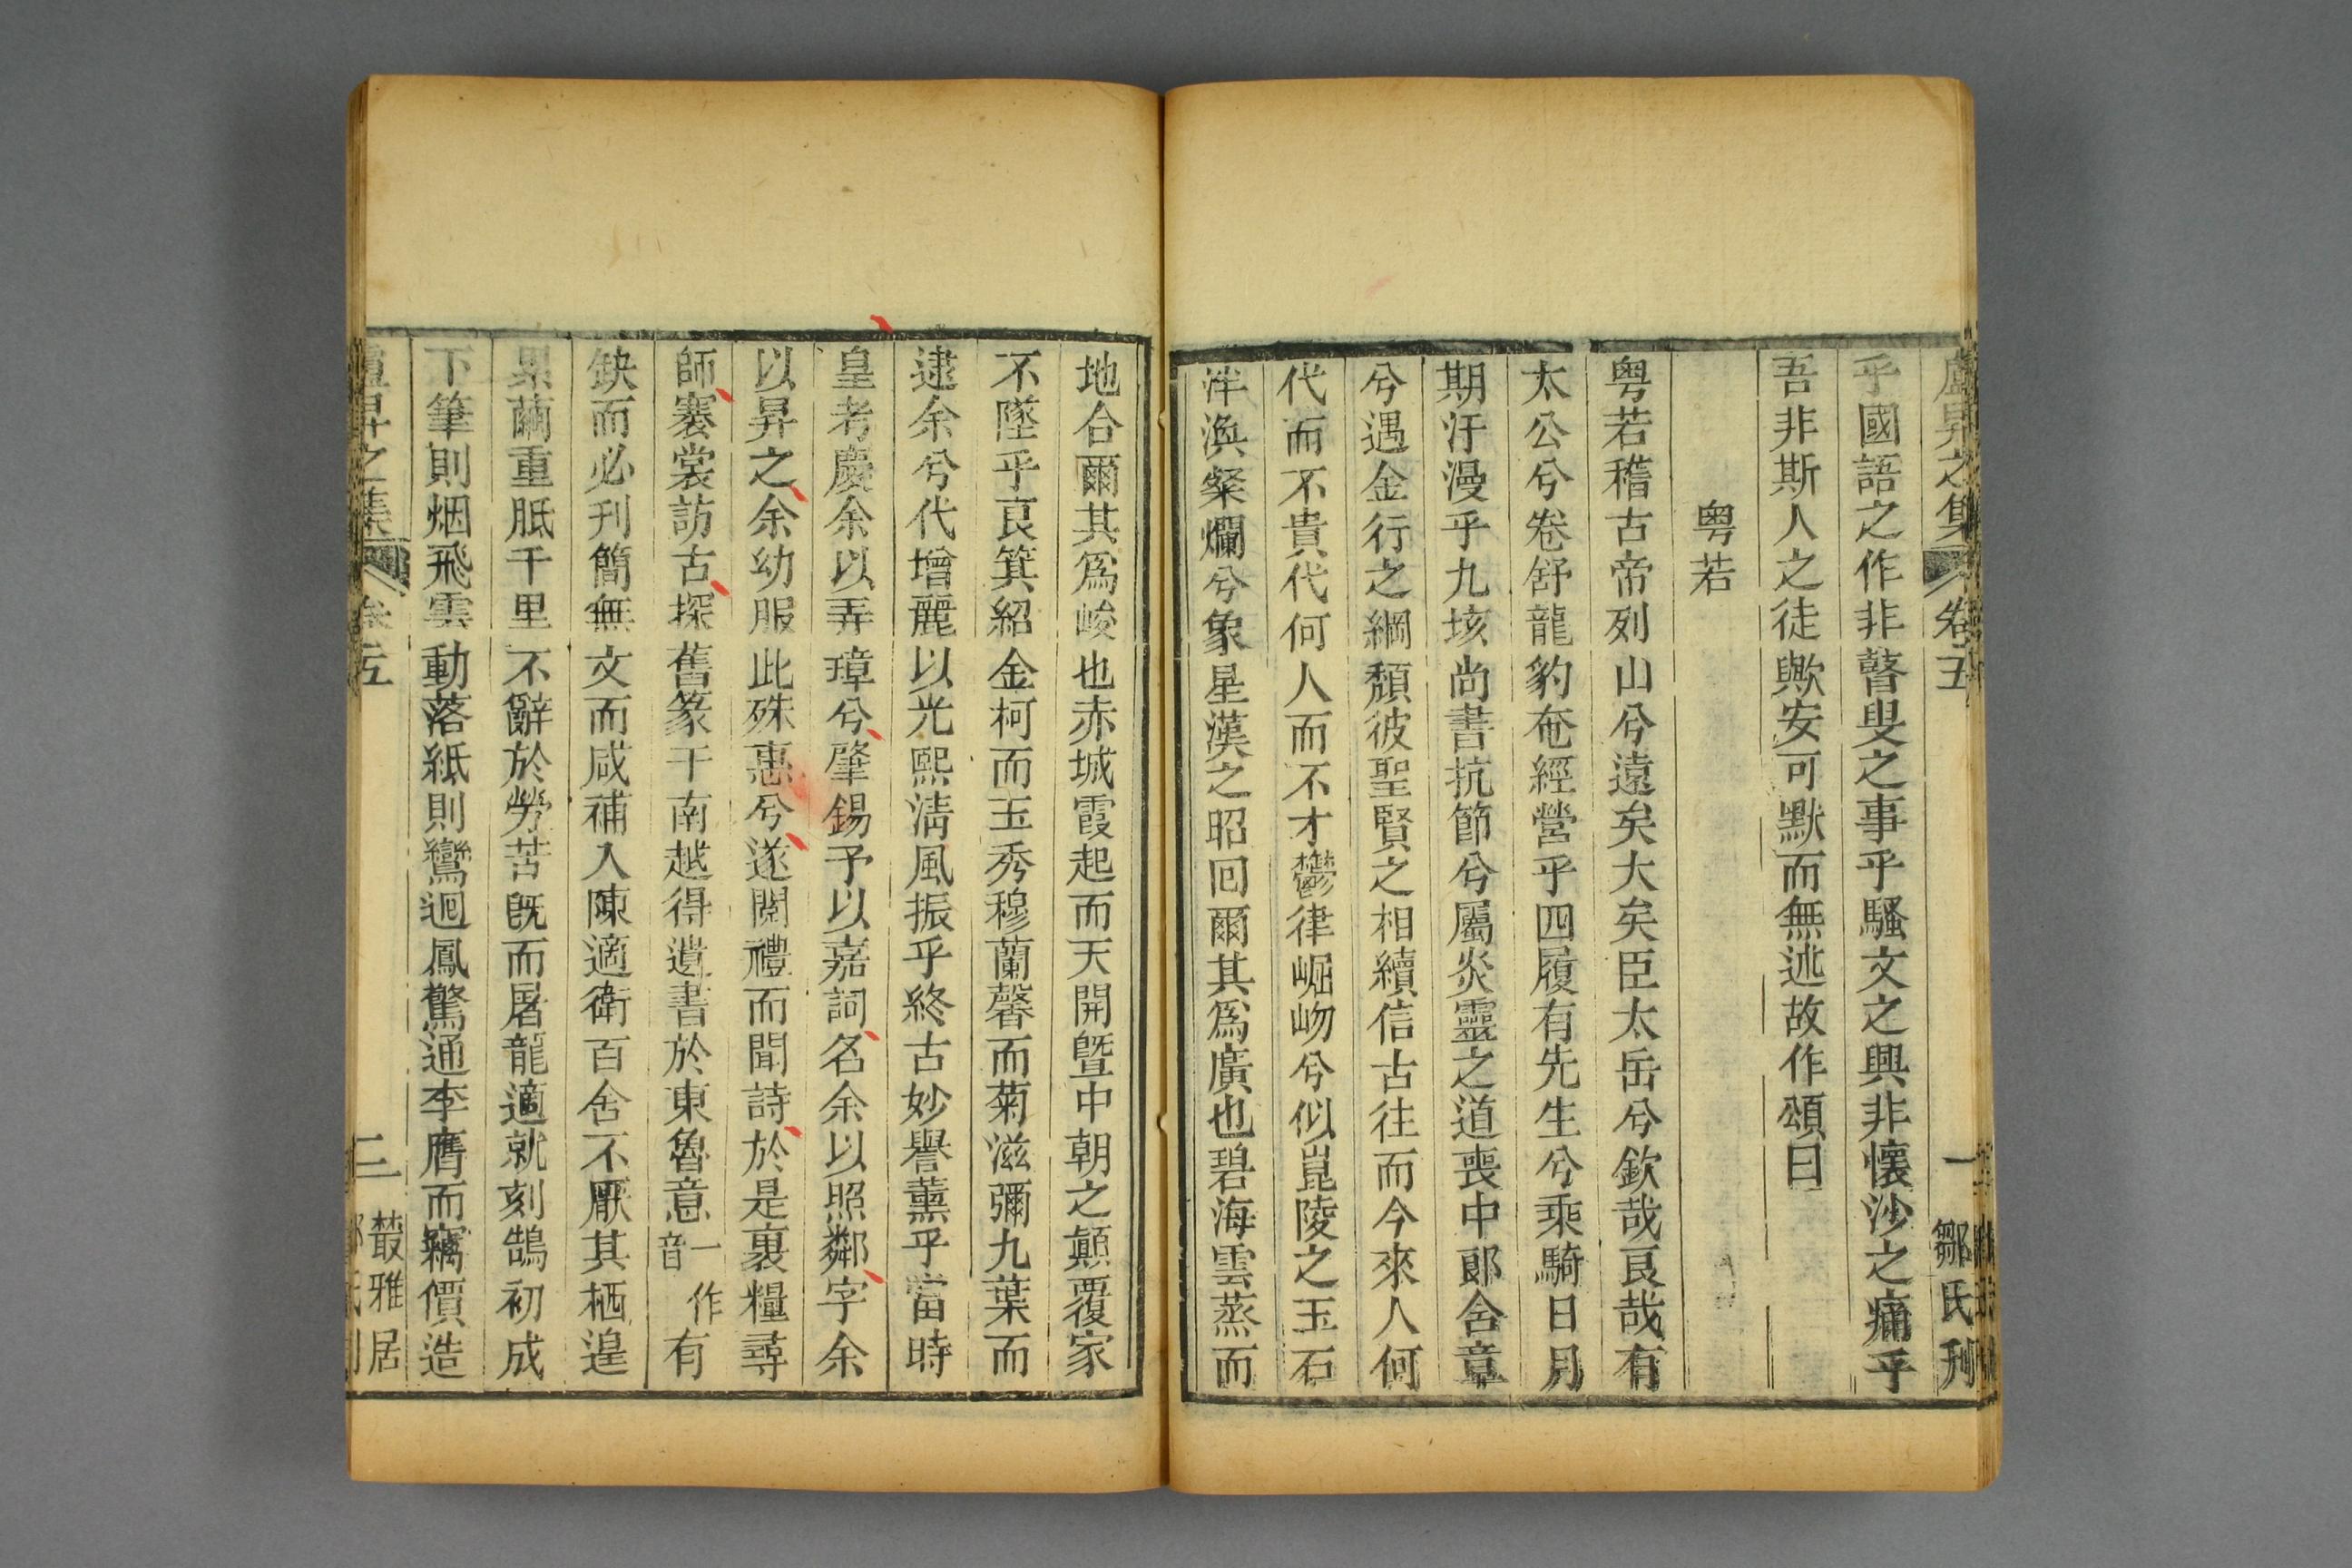 盧昇之集 卷五 一 鄒氏刋
乎國語之作非瞽叟之事乎騷文之興非懷沙之痛乎
吾非斯人之徒歟安可默而無述故作頌曰
粤若
粤若稽古帝列山兮遠矣大矣臣太岳兮欽哉良哉有
太公兮卷舒龍豹奄經營乎四履有先生兮乘騎日月
期汗漫乎九垓尚書抗節兮屬炎靈之道喪中郎舍章
兮遇金行之綱頹彼聖賢之相續信古往而今來人何
代而不貴代何人而不才鬱律崛岉兮似崑陵之玉石
泮渙粲爛兮象星漢之昭回爾其爲廣也碧海雲蒸而
地合爾其爲峻也赤城霞起而天開曁中朝之顚覆家
不墜乎良箕紹金柯而玉秀穆蘭馨而菊滋彌九葉而
逮余兮代增麗以光熙淸風振乎終古妙譽薰乎當時
皇考慶余以弄璋兮肇錫予以嘉詞名余以照鄰字余
以昇之余幼服此殊惠兮遂閱禮而聞詩於是裹糧尋
師褰裳訪古探舊篆于南越得遺書於東魯意一作音有
缺而必刊簡無文而咸補入陳適衛百舍不厭其栖遑
累繭重胝千里不辭於勞苦旣而屠龍適就刻鵠初成
下筆則烟飛雲動落紙則鸞迴鳳驚通李膺而竊價造
盧昇之集 卷五 二 叢雅居